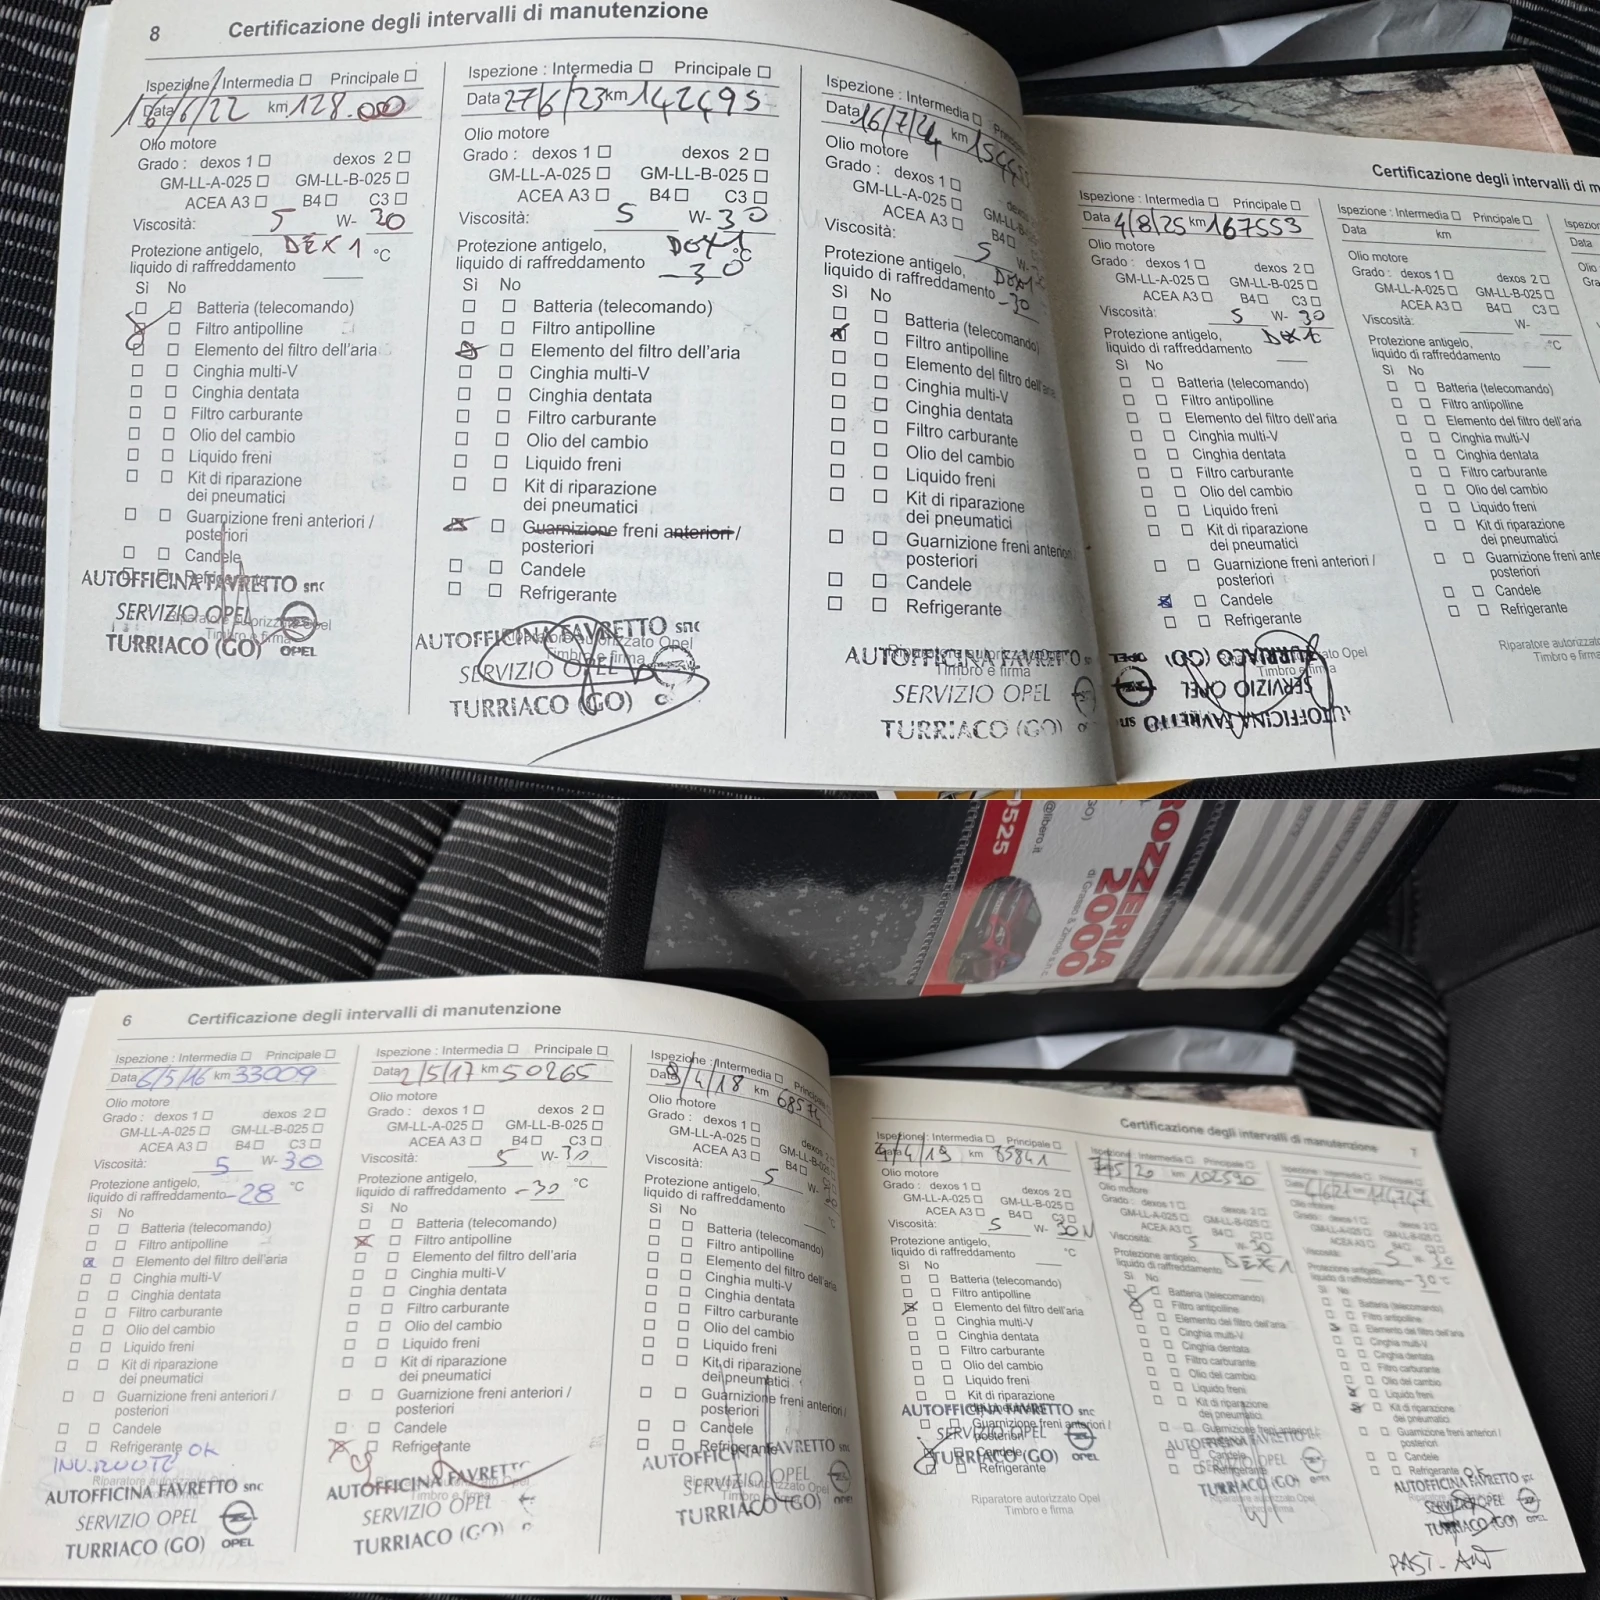 8 Certificazione degli intervalli di manutenzione
Ispezione : Intermedia Principale
Data 16/6/22 km 128.000
Olio motore
Grado : dexos 1 dexos 2
GM-LL-A-025 GM-LL-B-025
ACEA A3 B4 C3
Viscosità: 5 W- 30
Protezione antigelo, DEX 1 °C
liquido di raffreddamento
Sì No
Batteria (telecomando)
Filtro antipolline
Elemento del filtro dell'aria
Cinghia multi-V
Cinghia dentata
Filtro carburante
Olio del cambio
Liquido freni
Kit di riparazione
dei pneumatici
Guarnizione freni anteriori /
posteriori
Candele
AUTOFFICINA FAVRETTO snc
SERVIZIO OPEL
TURRIACO (GO) OPEL
Ispezione : Intermedia Principale
Data 27/6/23 km 142495
Olio motore
Grado : dexos 1 dexos 2
GM-LL-A-025 GM-LL-B-025
ACEA A3 B4 C3
Viscosità: 5 W- 30
Protezione antigelo, °C
liquido di raffreddamento -30
Sì No
Batteria (telecomando)
Filtro antipolline
Elemento del filtro dell'aria
Cinghia multi-V
Cinghia dentata
Filtro carburante
Olio del cambio
Liquido freni
Kit di riparazione
dei pneumatici
Guarnizione freni anteriori /
posteriori
Candele
Refrigerante
Riparatore autorizzato Opel
Timbro e firma
AUTOFFICINA FAVRETTO snc
SERVIZIO OPEL
TURRIACO (GO)
Ispezione : Intermedia
Data 16/7/24 km
Olio motore
Grado : dexos 1
GM-LL-A-025
ACEA A3 B4
Viscosità: 5 W-
Protezione antigelo,
liquido di raffreddamento -30
Sì No
Batteria (telecomando)
Filtro antipolline
Elemento del filtro dell'aria
Cinghia multi-V
Cinghia dentata
Filtro carburante
Olio del cambio
Liquido freni
Kit di riparazione
dei pneumatici
Guarnizione freni anteriori
posteriori
Candele
Refrigerante
AUTOFFICINA FAVRETTO
SERVIZIO OPEL
TURRIACO (GO)
Certificazione degli intervalli di
Ispezione : Intermedia Principale
Data 4/8/25 km 167553
Olio motore
Grado : dexos 1 dexos 2
GM-LL-A-025 GM-LL-B-025
ACEA A3 B4 C3
Viscosità: 5 W- 30
Protezione antigelo,
liquido di raffreddamento
Sì No
Batteria (telecomando)
Filtro antipolline
Elemento del filtro dell'aria
Cinghia multi-V
Cinghia dentata
Filtro carburante
Olio del cambio
Liquido freni
Kit di riparazione
dei pneumatici
Guarnizione freni anteriori /
posteriori
Candele
Refrigerante
AUTOFFICINA FAVRETTO snc
SERVIZIO OPEL
TURRIACO (GO) OPEL
Ispezione : Intermedia Principale
Data km
Olio motore
Grado : dexos 1 dexos 2
GM-LL-A-025 GM-LL-B-025
ACEA A3 B4 C3
Viscosità: W-
Protezione antigelo, °C
liquido di raffreddamento
Sì No
Batteria (telecomando)
Filtro antipolline
Elemento del filtro dell'aria
Cinghia multi-V
Cinghia dentata
Filtro carburante
Olio del cambio
Liquido freni
Kit di riparazione
dei pneumatici
Guarnizione freni
posteriori
Candele
Refrigerante
Riparatore autorizzato
Timbro e firma
Data
0525
@libero.it
CARROZZERIA
2000
6 Certificazione degli intervalli di manutenzione
Ispezione : Intermedia Principale
Data 6/5/16 km 33009
Olio motore
Grado : dexos 1 dexos 2
GM-LL-A-025 GM-LL-B-025
ACEA A3 B4 C3
Viscosità: 5 W- 30
Protezione antigelo, °C
liquido di raffreddamento -28
Sì No
Batteria (telecomando)
Filtro antipolline
Elemento del filtro dell'aria
Cinghia multi-V
Cinghia dentata
Filtro carburante
Olio del cambio
Liquido freni
Kit di riparazione
dei pneumatici
Guarnizione freni anteriori /
posteriori
Candele
Refrigerante OK
INV. RUOTE
AUTOFFICINA FAVRETTO snc
SERVIZIO OPEL
TURRIACO (GO) OPEL
Ispezione : Intermedia Principale
Data 2/5/17 km 50265
Olio motore
Grado : dexos 1 dexos 2
GM-LL-A-025 GM-LL-B-025
ACEA A3 B4 C3
Viscosità: 5 W- 30
Protezione antigelo, °C
liquido di raffreddamento -30
Sì No
Batteria (telecomando)
Filtro antipolline
Elemento del filtro dell'aria
Cinghia multi-V
Cinghia dentata
Filtro carburante
Olio del cambio
Liquido freni
Kit di riparazione
dei pneumatici
Guarnizione freni anteriori /
posteriori
Candele
Refrigerante
AUTOFFICINA FAVRETTO
SERVIZIO OPEL
TURRIACO (GO)
Ispezione : Intermedia
Data 9/4/18 km
Olio motore
Grado : dexos 1
GM-LL-A-025
ACEA A3 B4
Viscosità: 5 W-
Protezione antigelo,
liquido di raffreddamento
Sì No
Batteria (telecomando)
Filtro antipolline
Elemento del filtro dell'aria
Cinghia multi-V
Cinghia dentata
Filtro carburante
Olio del cambio
Liquido freni
Kit di riparazione
dei pneumatici
Guarnizione freni anteriori /
posteriori
Candele
Refrigerante
AUTOFFICINA FAVRETTO snc
SERVIZIO OPEL
TURRIACO (GO)
Certificazione degli intervalli di manutenzione 7
Ispezione : Intermedia Principale
Data 4/4/19 km 85841
Olio motore
Grado : dexos 1 dexos 2
GM-LL-A-025 GM-LL-B-025
ACEA A3 B4 C3
Viscosità: 5 W- 30
Protezione antigelo, °C
liquido di raffreddamento
Sì No
Batteria (telecomando)
Filtro antipolline
Elemento del filtro dell'aria
Cinghia multi-V
Cinghia dentata
Filtro carburante
Olio del cambio
Liquido freni
Kit di riparazione
dei pneumatici
Guarnizione freni anteriori /
posteriori
Candele
Refrigerante
AUTOFFICINA FAVRETTO snc
SERVIZIO OPEL
TURRIACO (GO) OPEL
Riparatore autorizzato Opel
Timbro e firma
Ispezione : Intermedia Principale
Data 7/5/20 km 102590
Olio motore
Grado : dexos 1 dexos 2
GM-LL-A-025 GM-LL-B-025
ACEA A3 B4 C3
Viscosità: 5 W- 30
Protezione antigelo, DEX 1
liquido di raffreddamento
Sì No
Batteria (telecomando)
Filtro antipolline
Elemento del filtro dell'aria
Cinghia multi-V
Cinghia dentata
Filtro carburante
Olio del cambio
Liquido freni
Kit di riparazione
dei pneumatici
AUTOFFICINA FAVRETTO
SERVIZIO OPEL
TURRIACO (GO)
Elemento del filtro dell'aria
Cinghia multi-V
Cinghia dentata
Filtro carburante
Olio del cambio
Liquido freni
Kit di riparazione
dei pneumatici
Guarnizione freni anteriori /
posteriori
Candele
Refrigerante OK
AUTOFFICINA FAVRETTO snc
SERVIZIO OPEL
TURRIACO (GO)
PAST. ANT